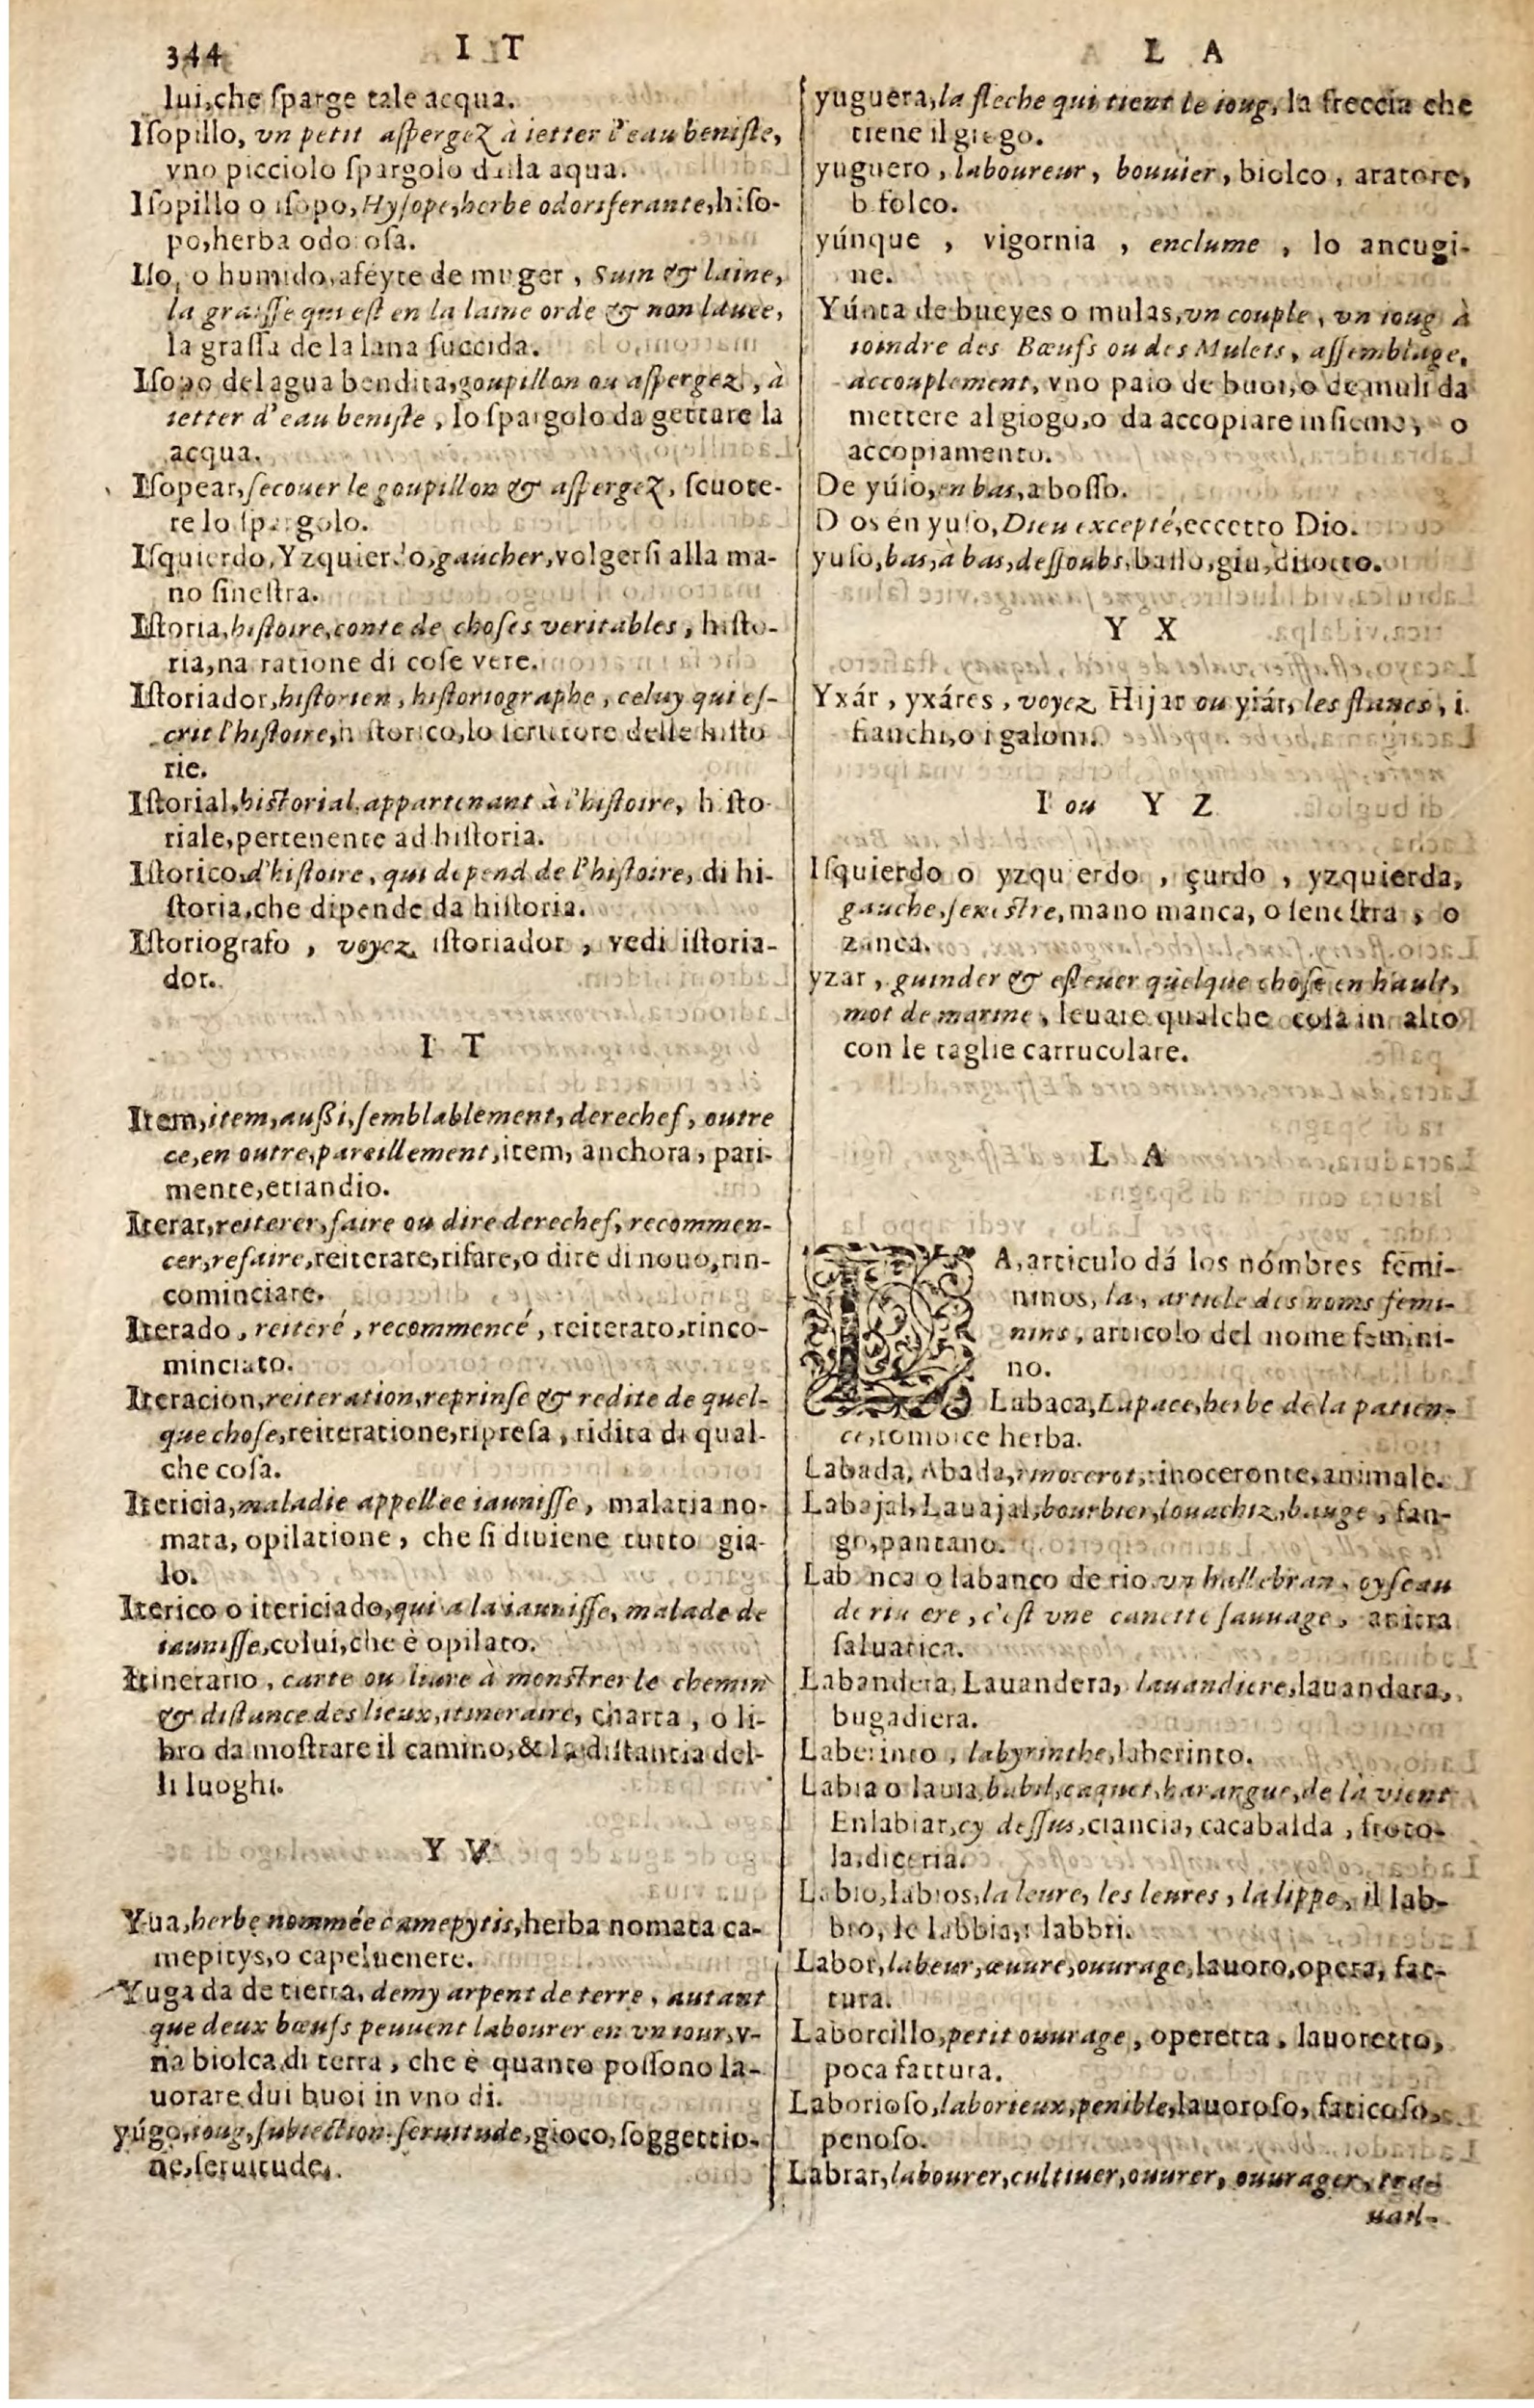 344
I T
L A
lui,che ſparge tale acqua.
Iſopillo, vn petit aſpergeZ à ietter l'eau beniſte,
vno picciolo ſpargolo dalla aqua.
Iſopillo o iſopo, Hyſope,herbe odoriferante,hiſo-
po,herba odoroſa.
Iſo, o humido, aféyte de muger, Suin & laine,
la graiſſe qui eſt en la laine orde & non lauée,
la graſſa de la lana ſuccida.
Iſopo del agua bendita,goupillon ou aſpergez, à
ietter d'eau beniſte, lo ſpargolo da gettare la
acqua.
Iſopear,ſecouer le goupillon & aſpergeZ, ſcuote-
re lo ſpargolo.
Iſquierdo,Yzquierdo,gaucher,volgerſi alla ma-
no ſineſtra.
Iſtoria,hiſtoire,conte de choſes veritables, hiſto-
ria,narratione di coſe vere.
Iſtoriador,hiſtorien, hiſtoriographe, celuy qui eſ-
crit l'hiſtoire,hiſtorico,lo ſcrittore delle hiſto
rie.
Iſtorial,historial,appartenant à l'hiſtoire, hiſto-
riale,pertenente ad hiſtoria.
Iſtorico,d'hiſtoire, qui depend de l'hiſtoire, di hi-
ſtoria,che dipende da hiſtoria.
Iſtoriografo, voyez iſtoriador, vedi iſtoria-
dor.
I T
Item,item,außi,ſemblablement,derechef, outre
ce,en outre,pareillement,item, anchora, pari-
mente,etiandio.
Iterar,reiterer,faire ou dire derechef, recommen-
cer,refaire,reiterare,rifare,o dire di nouo,rin-
cominciare.
Iterado, reiteré, recommencé, reiterato,rinco-
minciato.
Iteracion,reiteration,reprinſe & redite de quel-
que choſe,reiteratione,ripreſa, ridita di qual-
che coſa.
Itericia,maladie appellee iauniſſe, malatia no-
mata, opilatione, che ſi diuiene tutto gia-
lo.
Iterico o itericiado,qui a la iauniſſe, malade de
iauniſſe,colui,che è opilato.
Itinerario, carte ou liure à monstrer le chemin
& diſtance des lieux,itineraire, charta, o li-
bro da moſtrare il camino,& la diſtantia del-
li luoghi.
Y V
Yua,herbe nommée camepytis,herba nomata ca-
mepitys,o capeluenere.
Yugada de tierra, demy arpent de terre, autant
que deux bœufs peuuent labourer en vn iour,v-
na biolca di terra, che è quanto poſſono la-
uorare dui buoi in vno di.
yúgo,ioug,ſubiection,ſeruitude,gioco,ſoggettio-
ne,ſeruitude.
yuguera,la fleche qui tient le ioug, la freccia che
tiene il giogo.
yuguero, laboureur, bouuier, biolco, aratore,
bifolco.
yúnque, vigornia, enclume, lo ancugi-
ne.
Yúnta de bueyes o mulas,vn couple, vn ioug à
ioindre des Bœufs ou des Mulets, aſſemblage,
accouplement, vno paio de buoi,o de muli da
mettere al giogo,o da accopiare inſieme, o
accopiamento.
De yúſo,en bas,aboſſo.
Dios én yuſo,Dieu excepté,eccetto Dio.
yuſo,bas,à bas,deſſoubs,baſſo,giu,diſotto.
Y X
Yxár, yxáres, voyez Hijar ou yiár, les flancs, i
fianchi,o i galoni.
I ou Y Z
Iſquierdo o yzquierdo, çurdo, yzquierda,
gauche,ſenestre,mano manca, o ſeneſtra, o
zanca.
yzar, guinder & eſleuer quelque choſe en hault,
mot de marine, leuare qualche coſa in alto
con le taglie carrucolare.
L A
LA,articulo dá los nómbres femi-
ninos, la, article des noms femi-
nins, articolo del nome femini-
no.
Labaca,Lapace,herbe de la patien-
ce,rombice herba.
Labada, Abada,rinocerot,rinoceronte,animale.
Labajal,Lauajal,bourbier,louachiz,bauge, fan-
go,pantano.
Labanca o labanco de rio vn hallebran, oyſeau
de riuiere, c'eſt vne canette ſauuage, anitra
ſaluatica.
Labandera,Lauandera, lauandiere,lauandara,
bugadiera.
Laberinto, labyrinthe,laberinto.
Labia o lauia,babil,caquet,harangue,de là vient
Enlabiar,cy deſſus,ciancia, cacabalda, froto-
la,diceria.
Labio,labios,la leure, les leures, la lippe, il lab-
bro, le labbia,i labbri.
Labor,labeur,œuure,ouurage,lauoro,opera, fat-
tura.
Laborcillo,petit ouurage, operetta, lauoretto,
poca fattura.
Laborioſo,laborieux,penible,lauoroſo, faticoſo,
penoſo.
Labrar,labourer,cultiuer,ouurer, ouurager, tra-
uail-